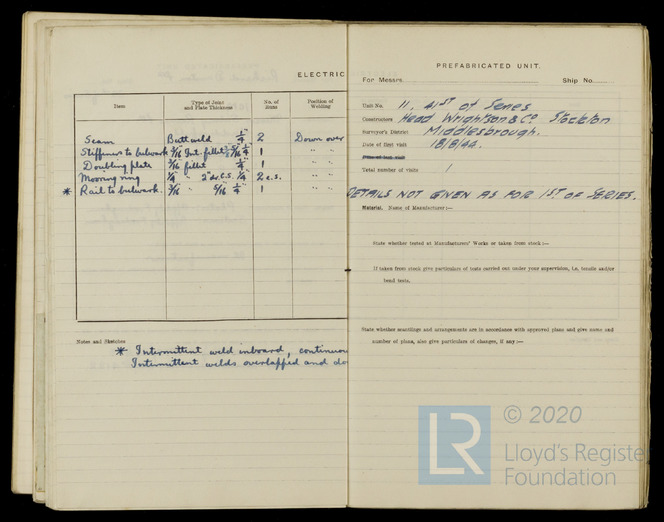 ELECTRIC
Item Type of Joint and Plate Thickness No. of Runs Position of Welding
Seam Butt weld 1/4" 2 Down over
Stiffeners to bulwark 3/16 Int. fillet 5/16 1/4" 1 " "
Doubling plate 3/16 fillet 1/4" 1 " "
Mooring ring 1/4 " 2" dr. C.S. 1/4 2 e.s. " "
* Rail to bulwark. 3/16 " 5/16 1/4" 1 " "
Notes and Sketches
* Intermittent weld inboard, continuou
Intermittent welds overlapped and do
PREFABRICATED UNIT.
For Messrs. Ship No.
Unit No. 11, 41ST of Series
Constructors Head Wrightson & Co Stockton
Surveyor's District Middlesbrough.
Date of first visit 18/8/44.
Date of last visit
Total number of visits 1
DETAILS NOT GIVEN AS FOR 1ST OF SERIES.
Material. Name of Manufacturer:—
State whether tested at Manufacturers' Works or taken from stock:—
If taken from stock give particulars of tests carried out under your supervision, i.e, tensile and/or
bend tests.
State whether scantlings and arrangements are in accordance with approved plans and give name and
number of plans, also give particulars of changes, if any:—
LR
© 2020
Lloyd's Register
Foundation